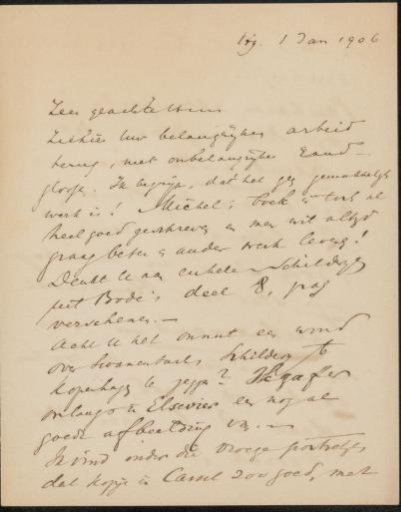 1 Jan 1906
Zeer geachte Heer
Ziehier Uw belangrijken arbeid
terug, met onbelangrijke Rand-
glosse. Ik begrijp, dat het geen gemakkelijk
werk is! Michel's boek is toch al
heel goed geschreven en men wil altijd
graag beter en ander werk leveren!
Denkt U aan enkele Schilderijen
uit Bode's deel 8, pas
verschenen.—
Acht U het onnut een woord
over Swanenburchs Schilderij te
Kopenhagen te zeggen? Ik gaf er
onlangs in Elsevier een nogal
goede afbeelding van.—
Ik vind onder die vroege portretjes
dat kopje in Cassel zoo goed, met